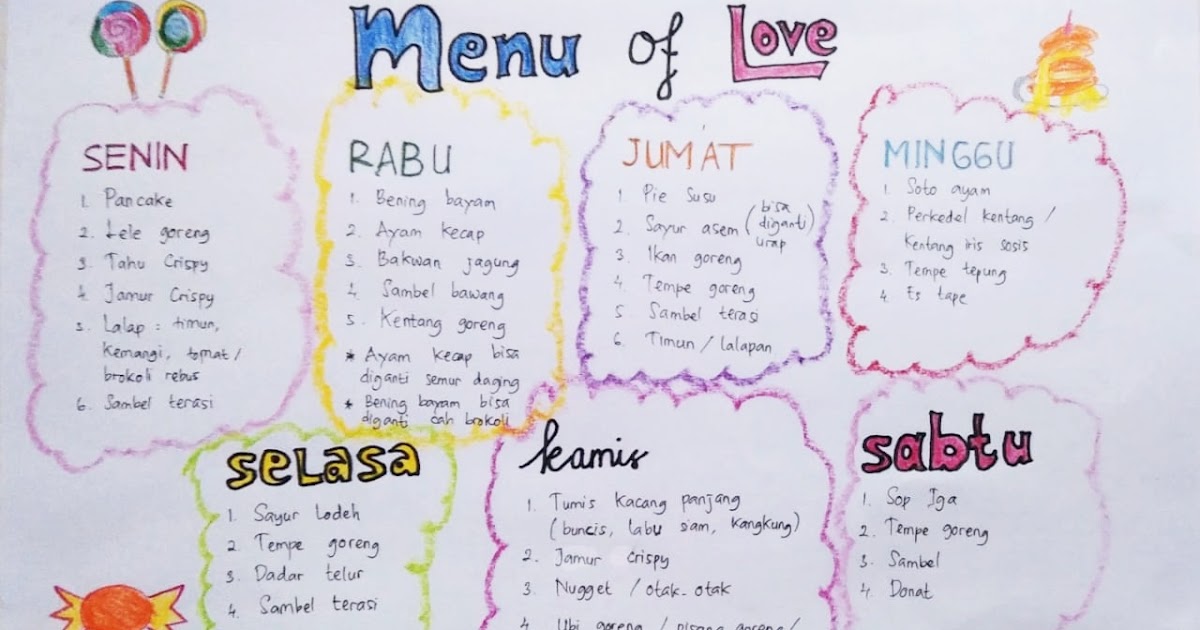 Menu of Love
SENIN
1. Pancake
2. Lele goreng
3. Tahu Crispy
4. Jamur Crispy
5. Lalap : timun,
kemangi, tomat /
brokoli rebus
6. Sambel terasi
RABU
1. Bening bayam
2. Ayam kecap
3. Bakwan jagung
4. Sambel bawang
5. Kentang goreng
* Ayam kecap bisa
diganti semur daging
* Bening bayam bisa
diganti cah brokoli
JUM'AT
1. Pie Susu
2. Sayur asem (bisa
diganti)
urap
3. Ikan goreng
4. Tempe goreng
5. Sambel terasi
6. Timun / lalapan
MINGGU
1. Soto ayam
2. Perkedel kentang /
kentang iris sosis
3. Tempe tepung
4. Es tape
SELASA
1. Sayur Lodeh
2. Tempe goreng
3. Dadar telur
4. Sambel terasi
kamis
1. Tumis kacang panjang
(buncis, labu siam, kangkung)
2. Jamur crispy
3. Nugget / otak-otak
4. Ubi goreng / pisang goreng /
sabtu
1. Sop Iga
2. Tempe goreng
3. Sambel
4. Donat